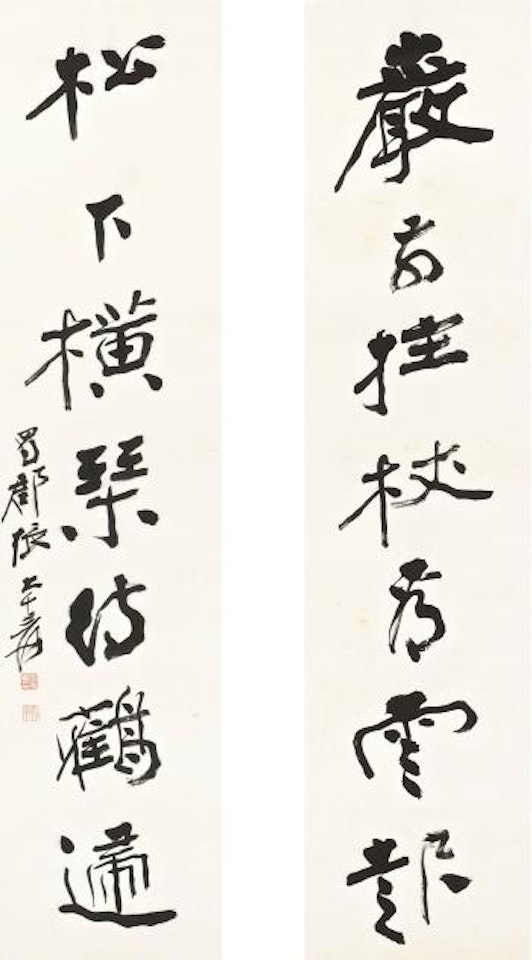 嚴前拄杖看雲起
松下橫琴待鶴歸
蜀郡張大千爰